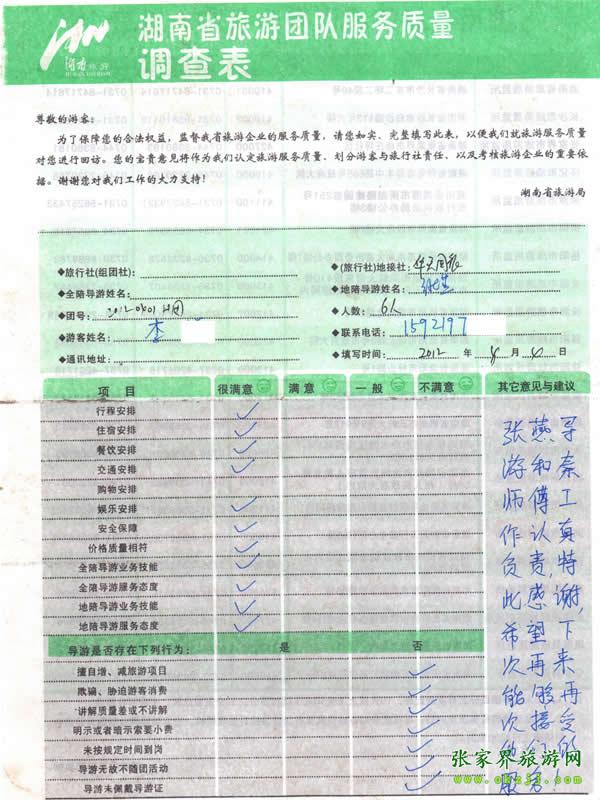 湖南省旅游团队服务质量
调查表
尊敬的游客：
为了保障您的合法权益，监督我省旅游企业的服务质量，请您如实、完整填写此表，以便我们就旅游服务质量
对您进行回访。您的宝贵意见将作为我们认定旅游服务质量、划分游客与旅行社责任、以及考核旅游企业的重要依
据。谢谢您对我们工作的大力支持！
湖南省旅游局
◆旅行社(组团社)：
◆(旅行社)地接社：
◆全陪导游姓名：
◆地陪导游姓名：
◆团号：
◆人数：6人
◆游客姓名：李
◆联系电话：1592197
◆通讯地址：
◆填写时间：2012 年 月 日
项 目 很满意 满 意 一 般 不满意 其它意见与建议
行程安排
住宿安排
餐饮安排
交通安排
购物安排
娱乐安排
安全保障
价格质量相符
全陪导游业务技能
全陪导游服务态度
地陪导游业务技能
地陪导游服务态度
导游是否存在下列行为： 是 否
擅自增、减旅游项目
欺骗、胁迫游客消费
讲解质量差或不讲解
明示或者暗示索要小费
未按规定时间到岗
导游无故不随团活动
导游未佩戴导游证
张燕导
游和秦
师傅工
作认真
负责，特
此感谢，
希望下
次再来
能够再
次接受
你们的
服务.
张家界旅游网